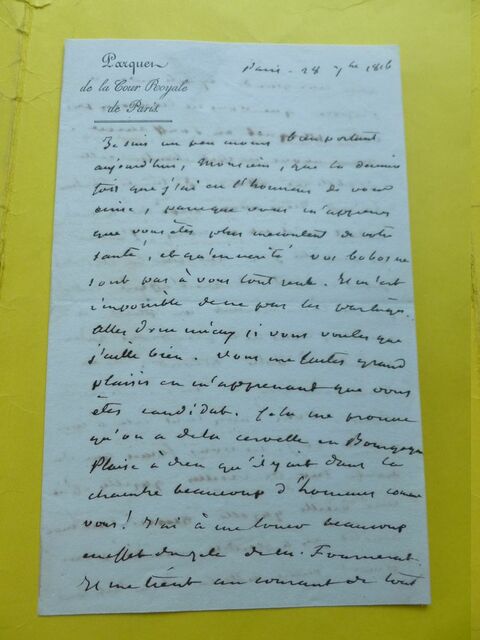 Parquet
de la Cour Royale
de Paris.
Paris. 28 7bre 1816
Je suis un peu moins bien portant
aujourd'hui, Monsieur, que la dernière
fois que j'ai eu l'honneur de vous
écrire, parce que vous m'apprenez
que vous êtes plus mécontent de votre
santé, et qu'en vérité vos bobos ne
sont pas à vous tout seul. Il m'est
impossible de ne pas les partager.
Allez donc mieux si vous voulez que
j'aille bien. Vous me faites grand
plaisir en m'apprenant que vous
êtes candidat. Cela me prouve
qu'on a de la cervelle en Bourgogne
Plaise à dieu qu'il y ait dans la
chambre beaucoup d'hommes comme
vous! J'ai à me louer beaucoup
en effet du zèle de M. Fournerat.
Il me tient au courant de tout